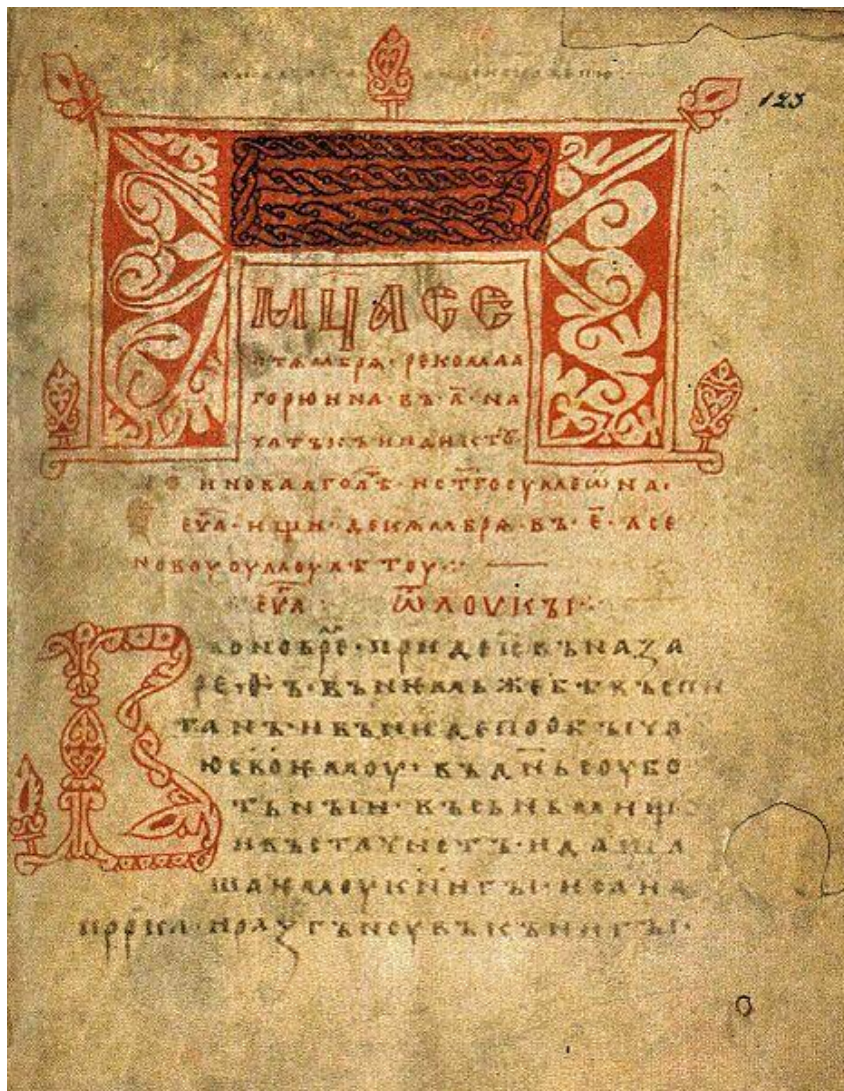 123
МЦА СЕ
птѧмбрѧ· рекомаа
горюина· въ· а҃· на
чатъкъ индикто
и новааго лѣ· и ст҃го сумеѡна·
еѵ҃а· ищи· декѧмбрѧ· въ· е҃· л се
новоуоумоу лѣтоу:·
еѵ҃а ѿ лоукꙑ·
Воно врⷨе· приде іс҃ въ наза
реѳъ· въ нѥмьже бѣ въспи
танъ· и въниде по обꙑча
ю своѥмоу· въ дн҃ь соубо
тьнꙑи· въ сьньмищ
и въста чистъ· и даша
ѥмоу книгꙑ· исаиꙗ
прр҃ка· и разгъноувъ кънигꙑ·